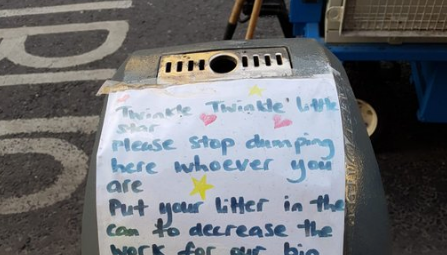 Twinkle Twinkle little
star
Please stop dumping
here whoever you
are
Put your litter in the
can to decrease the
work for our bin